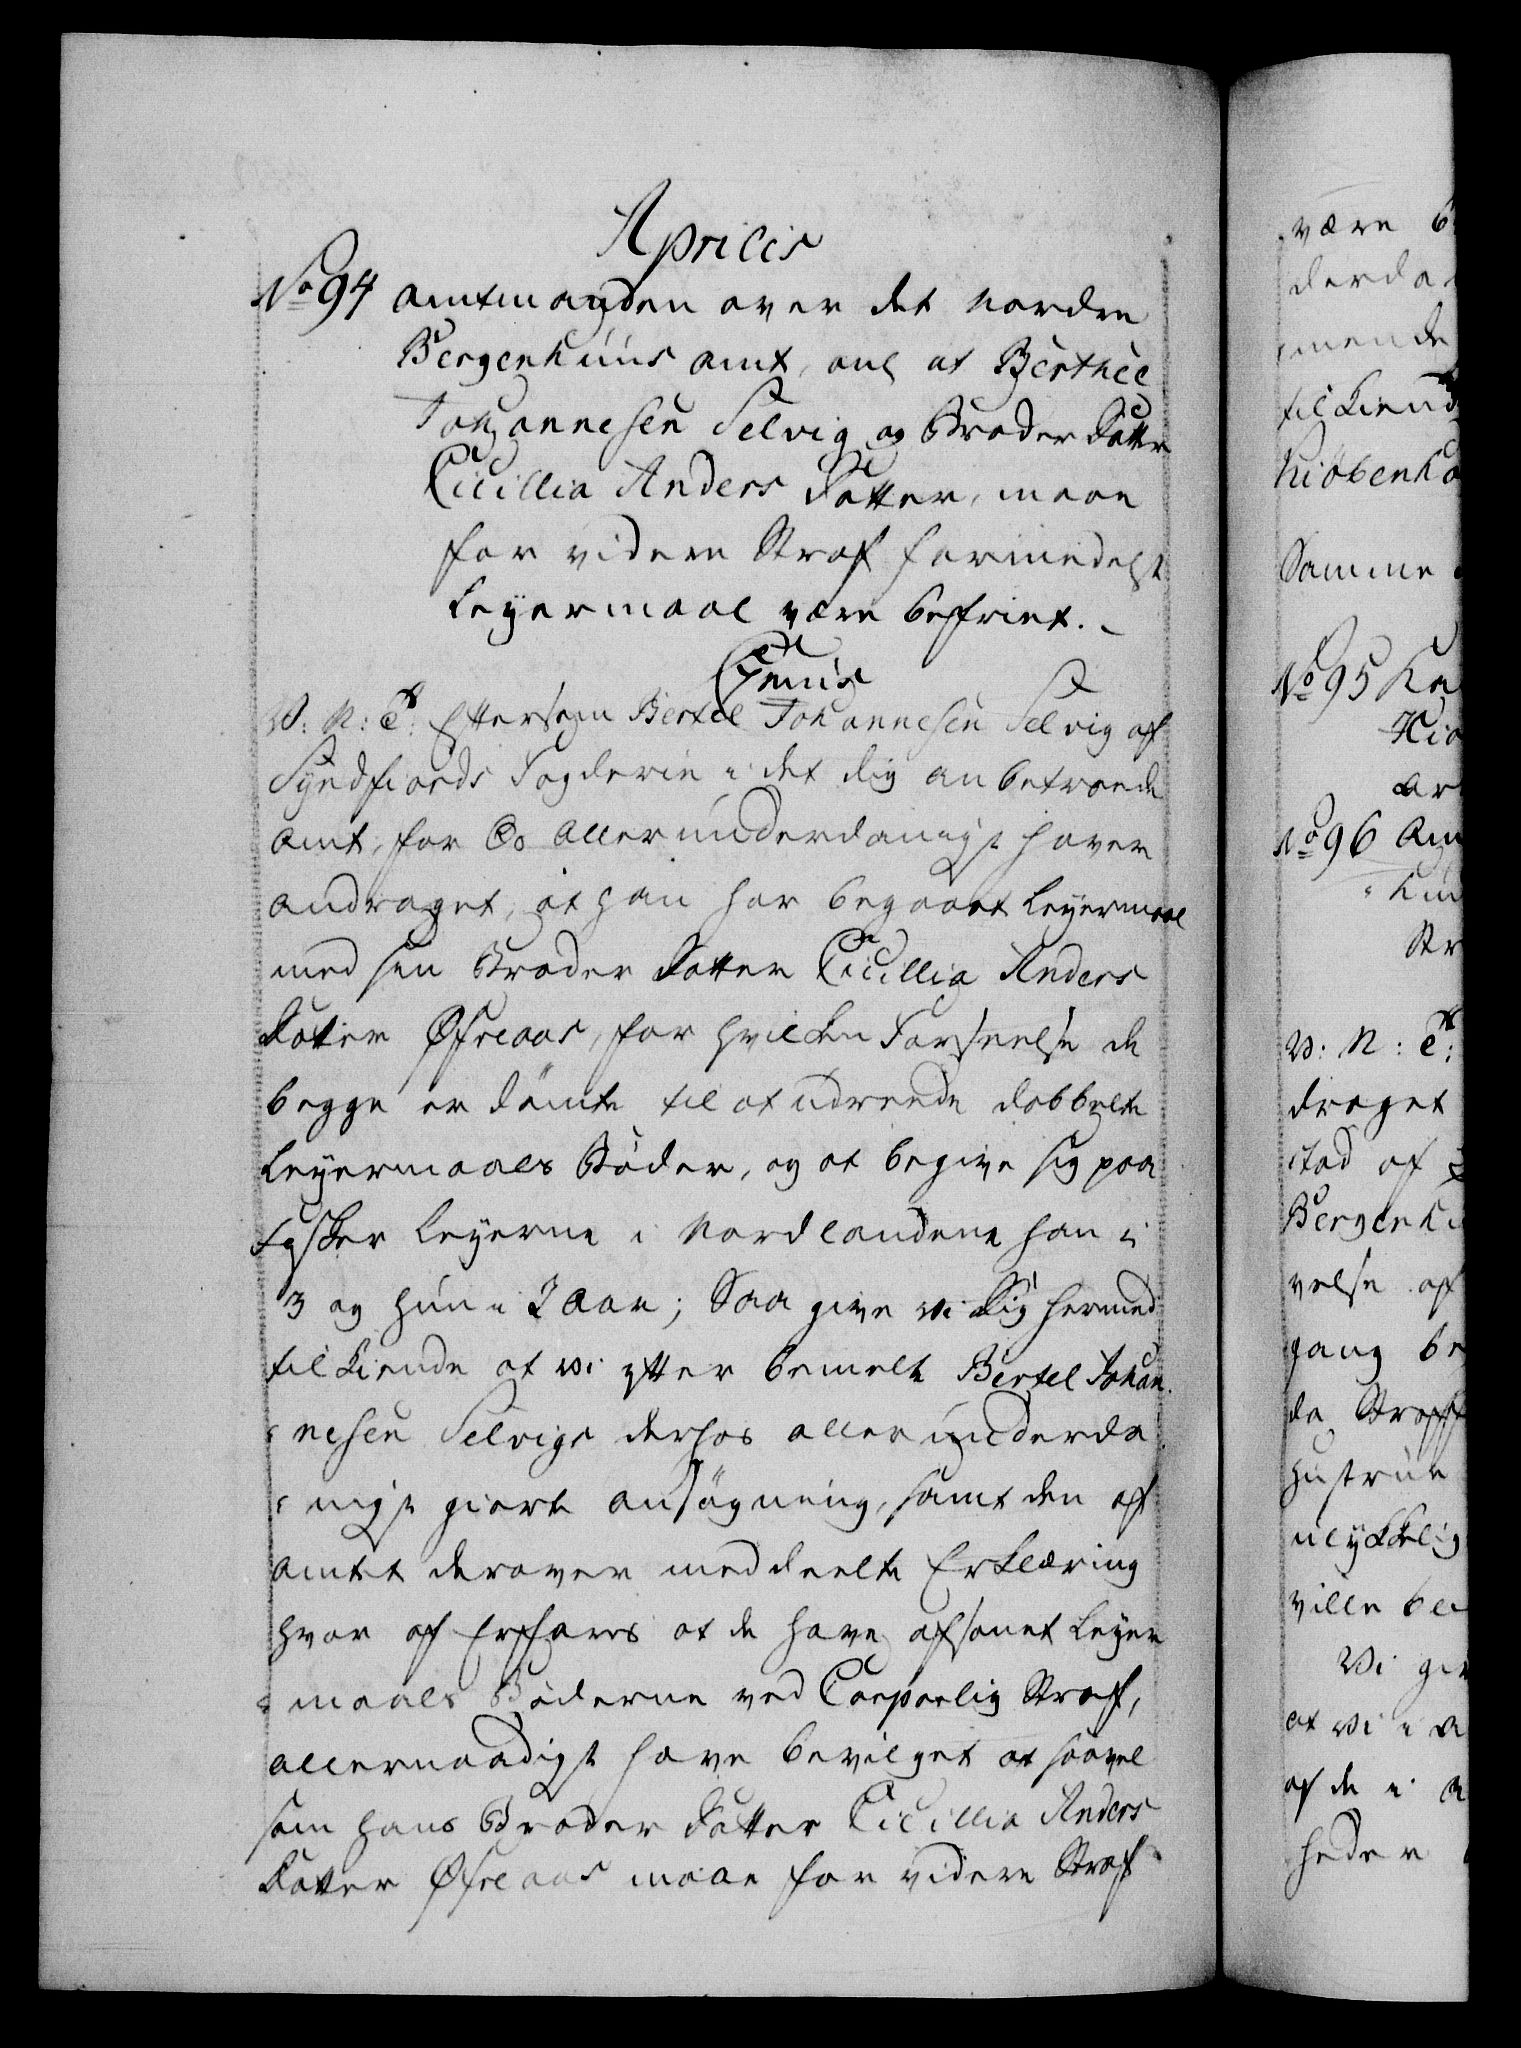 Aprilis
No 94 Amtmanden over det Nordre
Bergenhuus Amt, anl at Berthel
Johannesen Selvig og Broder Datter
Cicillia Anders Datter, maae
for videre Straf formedelst
Leyermaal være befriet.
Genus
V: N: C: Eftersom Bertel Johannesen Selvig af
Syndfiords Fogderie i det dig anbetroede
Amt, for Os allerunderdanigst haver
andraget, at han har begaaet Leyermaal
med sin Broder Datter Cicillia Anders
Datter Øfreaas, for hvilken Forseelse de
begge er dømte til at udreede dobbelte
Leyermaals Bøder, og at begive sig paa
Fisker Leyerne i Nordlandene han i
3 og hun i 2 Aar; Saa give vi dig hermed
tilkiende at vi efter bemelte Bertel Johan-
nesen Selvigs derhos allerunderda-
nigst giorte ansøgning, samt den af
Amtet derover meddeelte Erklæring
hvor af Erfares at de have afsonet Leyer-
maals Bøderne ved Corporlig Straf,
allernaadigst have bevilget at saavel
som hans Broder Datter Cicillia Anders
Datter Øfreaas maae for videre Straf
være
derda
mende
tilkiend
Kiøbenha
Samme
No 95
No 96
V: N: C:
draget
stad af
Bergenh
velse af
gang be
da Straff
Hustrue
ulykkelig
ville
Vi gi
at vi i
af de i
heder